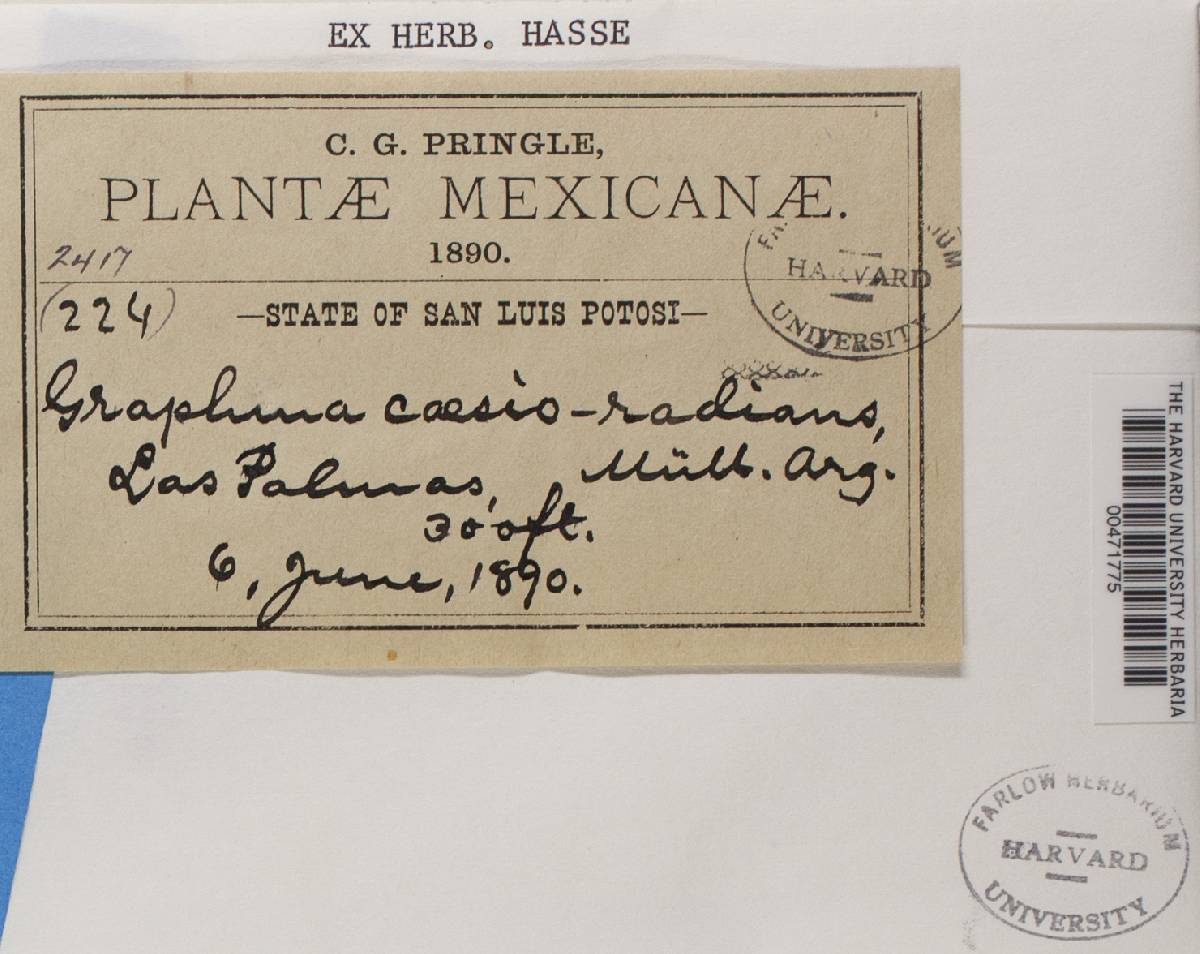 EX HERB. HASSE
C. G. PRINGLE,
PLANTÆ MEXICANÆ.
1890.
2417
(224)
—STATE OF SAN LUIS POTOSI—
Graphina cæsio-radians,
Müll. Arg.
Las Palmas,
300ft.
6, June, 1890.
HARVARD
UNIVERSITY
THE HARVARD UNIVERSITY HERBARIA
00471775
FARLOW HERBARIUM
HARVARD
UNIVERSITY